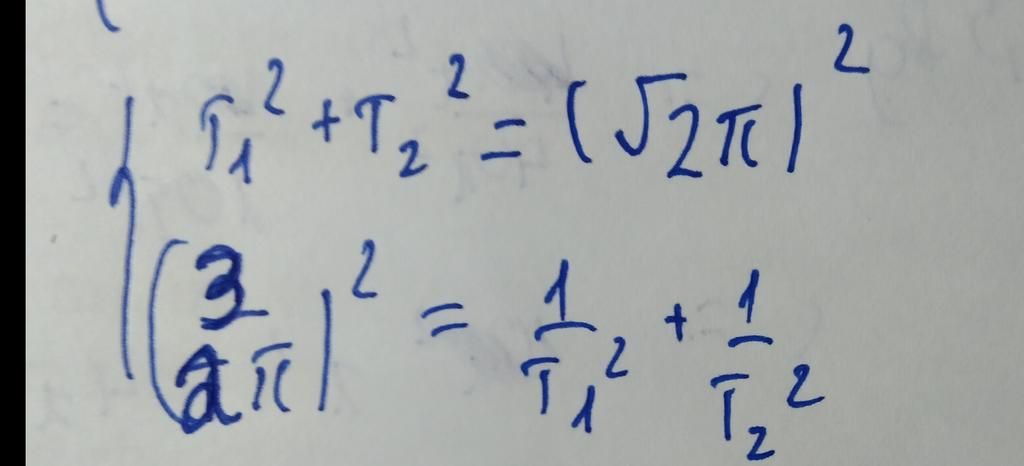 T₁² + T₂² = (√2π)²
(3/2π)² = 1/T₁² + 1/T₂²